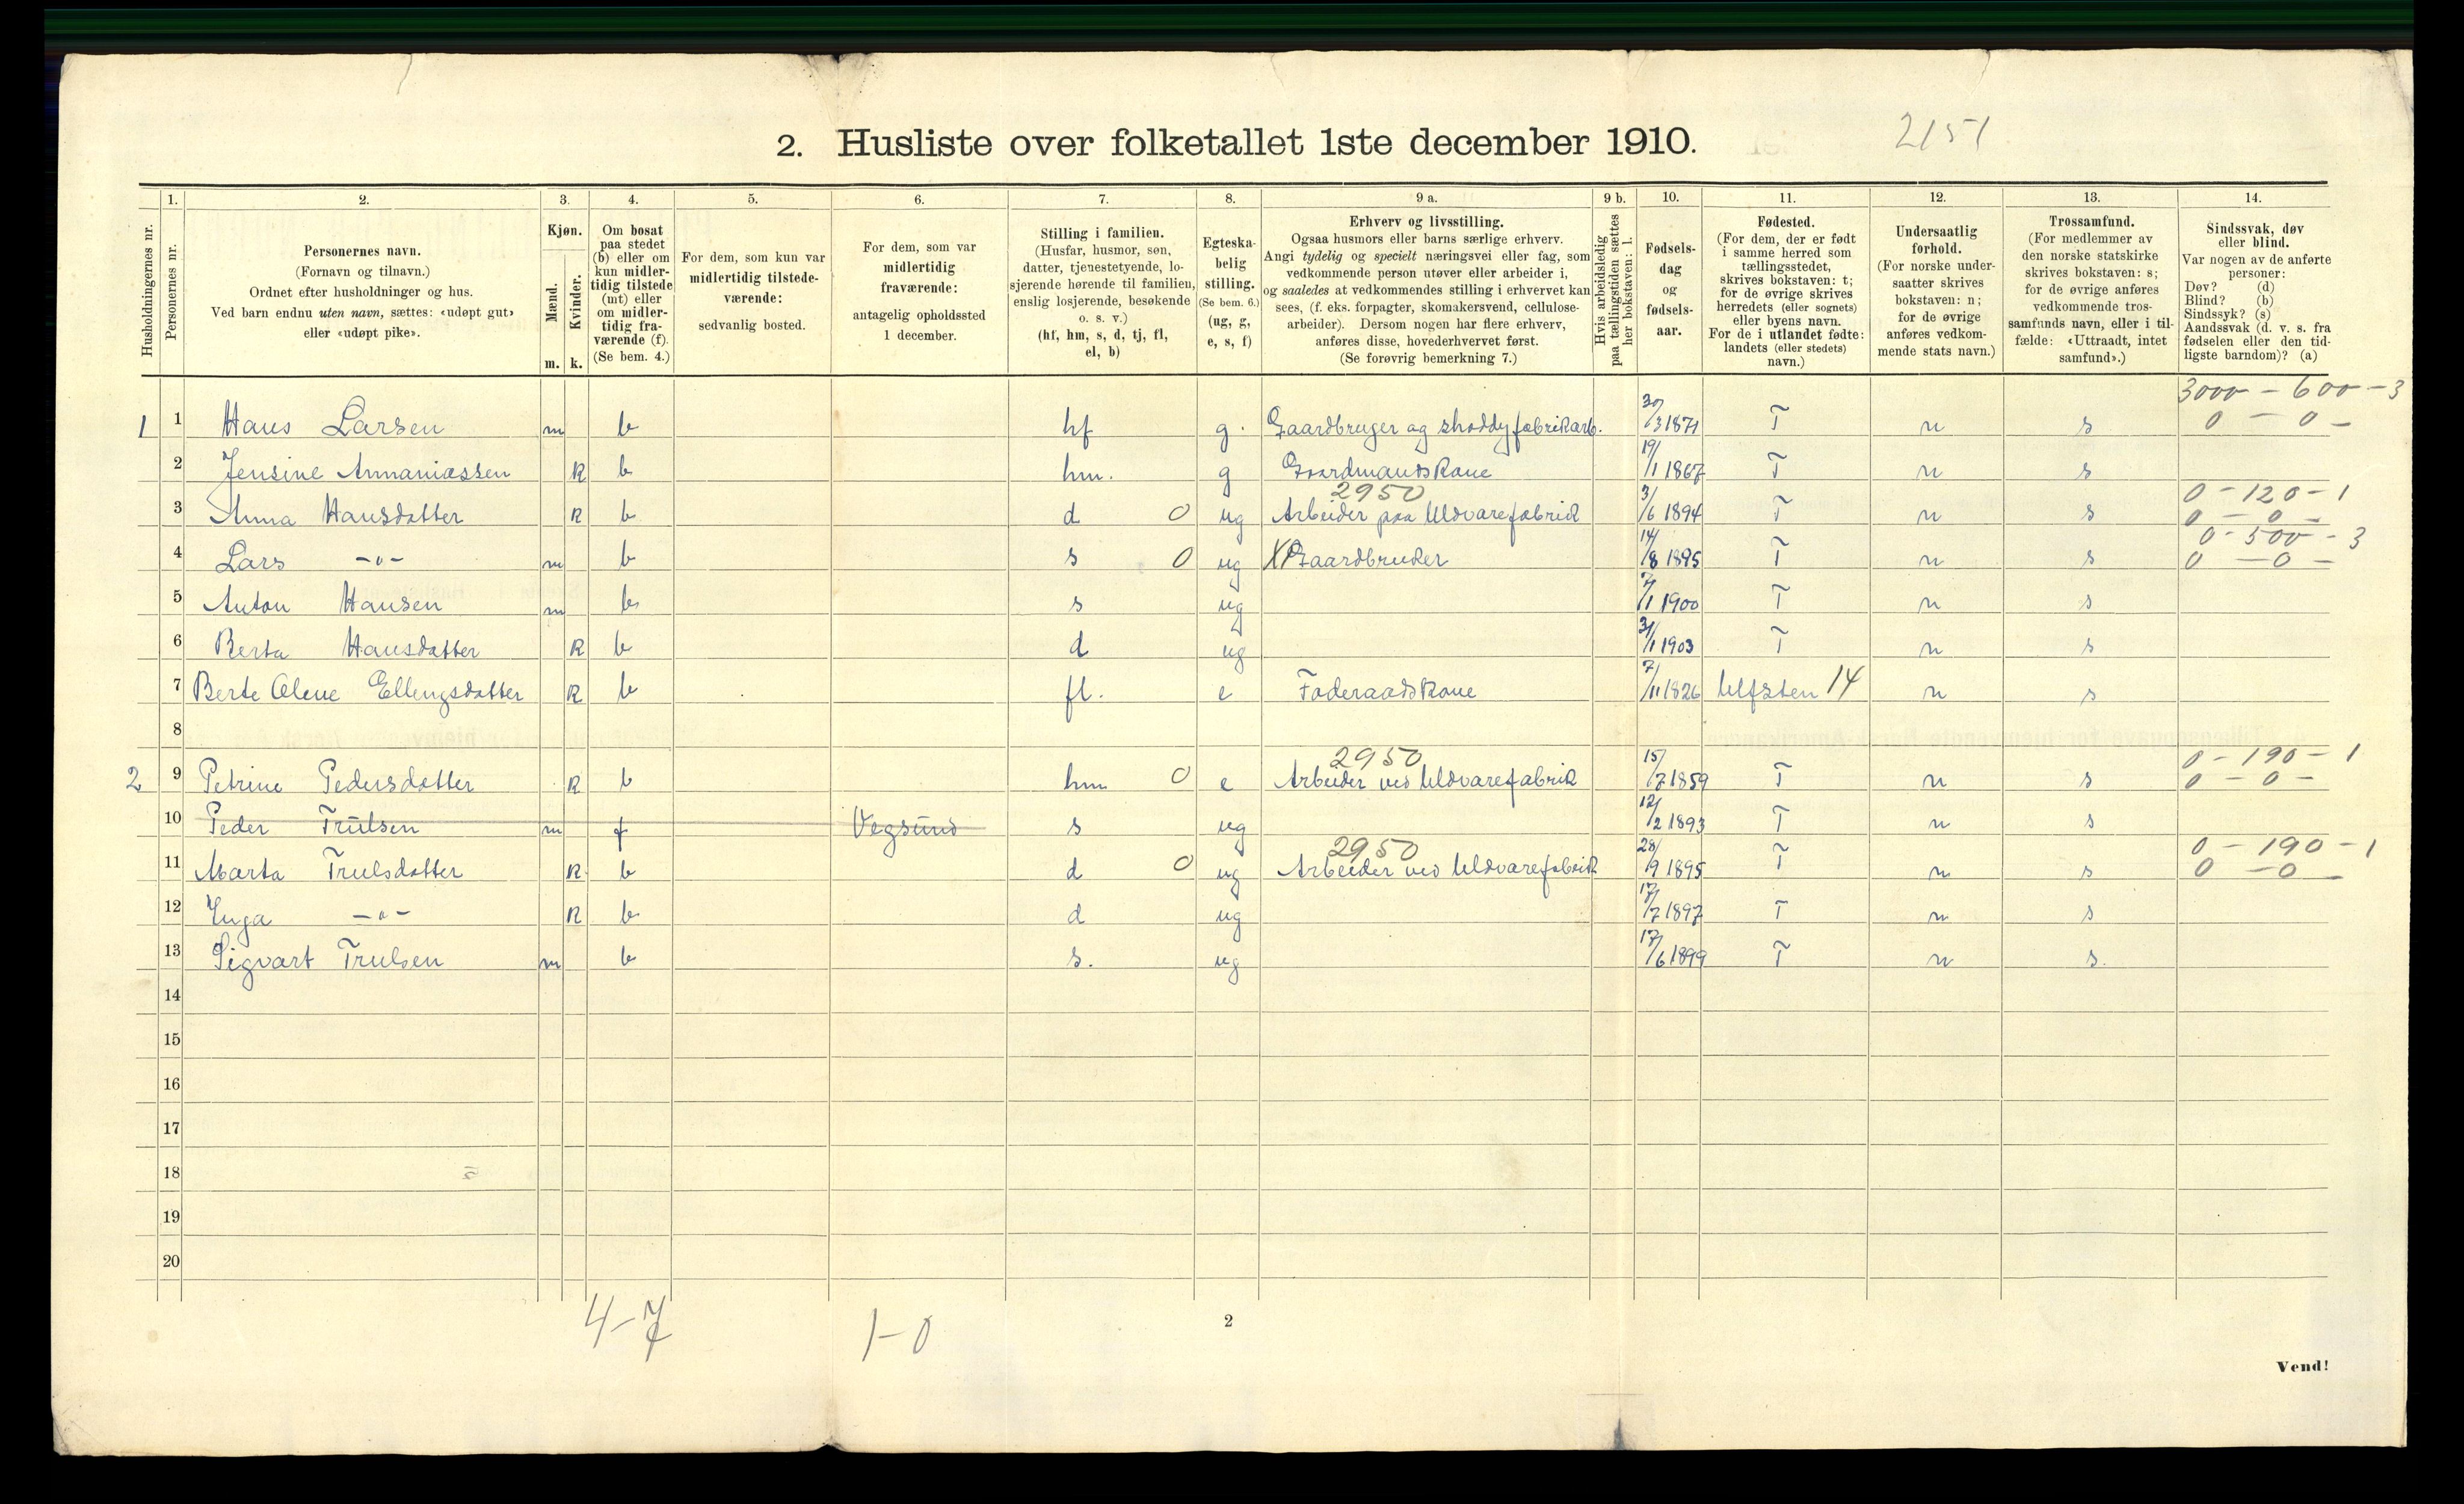 2. Husliste over folketallet 1ste december 1910. 2151
Husholdningernes nr.
1. Personernes nr.
2. Personernes navn.
(Fornavn og tilnavn.)
Ordnet efter husholdninger og hus.
Ved barn endnu uten navn, sættes: «udøpt gut»
eller «udøpt pike».
3. Kjøn.
Mænd. m.
Kvinder. k.
4. Om bosat
paa stedet
(b) eller om
kun midler-
tidig tilstede
(mt) eller
om midler-
tidig fra-
værende (f).
(Se bem. 4.)
5. For dem, som kun var
midlertidig tilstede-
værende:
sedvanlig bosted.
6. For dem, som var
midlertidig
fraværende:
antagelig opholdssted
1 december.
7. Stilling i familien.
(Husfar, husmor, søn,
datter, tjenestetyende, lo-
sjerende hørende til familien,
enslig losjerende, besøkende
o. s. v.)
(hf, hm, s, d, tj, fl,
el, b)
8. Egteska-
belig
stilling.
(Se bem. 6.)
(ug, g,
e, s, f)
9 a. Erhverv og livsstilling.
Ogsaa husmors eller barns særlige erhverv.
Angi tydelig og specielt næringsvei eller fag, som
vedkommende person utøver eller arbeider i,
og saaledes at vedkommendes stilling i erhvervet kan
sees, (f. eks. forpagter, skomakersvend, cellulose-
arbeider). Dersom nogen har flere erhverv,
anføres disse, hovederhvervet først.
(Se forøvrig bemerkning 7.)
9 b. Hvis arbeidsledig
paa tællingstiden sættes
her bokstaven: l.
10. Fødsels-
dag
og
fødsels-
aar.
11. Fødested.
(For dem, der er født
i samme herred som
tællingsstedet,
skrives bokstaven: t;
for de øvrige skrives
herredets (eller sognets)
eller byens navn.
For de i utlandet fødte:
landets (eller stedets)
navn.)
12. Undersaatlig
forhold.
(For norske under-
saatter skrives
bokstaven: n;
for de øvrige
anføres vedkom-
mende stats navn.)
13. Trossamfund.
(For medlemmer av
den norske statskirke
skrives bokstaven: s;
for de øvrige anføres
vedkommende tros-
samfunds navn, eller i til-
fælde: «Uttraadt, intet
samfund».)
14. Sindssvak, døv
eller blind.
Var nogen av de anførte
personer:
Døv? (d)
Blind? (b)
Sindssyk? (s)
Aandssvak (d. v. s. fra
fødselen eller den tid-
ligste barndom)? (a)
3000 - 600 - 3
1 1 Hans Larsen m b hf g. Gaardbruger og shoddyfabrikarb. 30/3 1871 T n s 0 - 0 -
2 Jensine Annaniassen k b hm. g Gaardmandskone 19/1 1867 T n s
2950 0 - 120 - 1
3 Anna Hansdatter k b d 0 ug Arbeider paa Uldvarefabrik 3/6 1894 T n s 0 - 0 -
0 - 500 - 3
4 Lars -"- m b s 0 ug X Gaardbruker 14/8 1895 T n s 0 - 0 -
5 Anton Hansen m b s ug 7/1 1900 T n s
6 Berta Hansdatter k b d ug 31/1 1903 T n s
7 Berte Olene Ellengsdatter k b fl. e Foderaadskone 7/11 1826 Ulfsten 14 n s
8
2950 0 - 190 - 1
2 9 Petrine Pedersdatter k b hm 0 e Arbeider ved Uldvarefabrik 15/7 1859 T n s 0 - 0 -
10 Peder Trulsen m f Vegsund s ug 12/2 1893 T n s
2950 0 - 190 - 1
11 Marta Trulsdatter k b d 0 ug Arbeider ved Uldvarefabrik 28/9 1895 T n s 0 - 0 -
12 Inga -"- k b d ug 17/7 1897 T n s
13 Sigvart Trulsen m b s. ug 17/6 1899 T n s.
14
15
16
17
18
19
20
4-7 1-0 2
Vend!